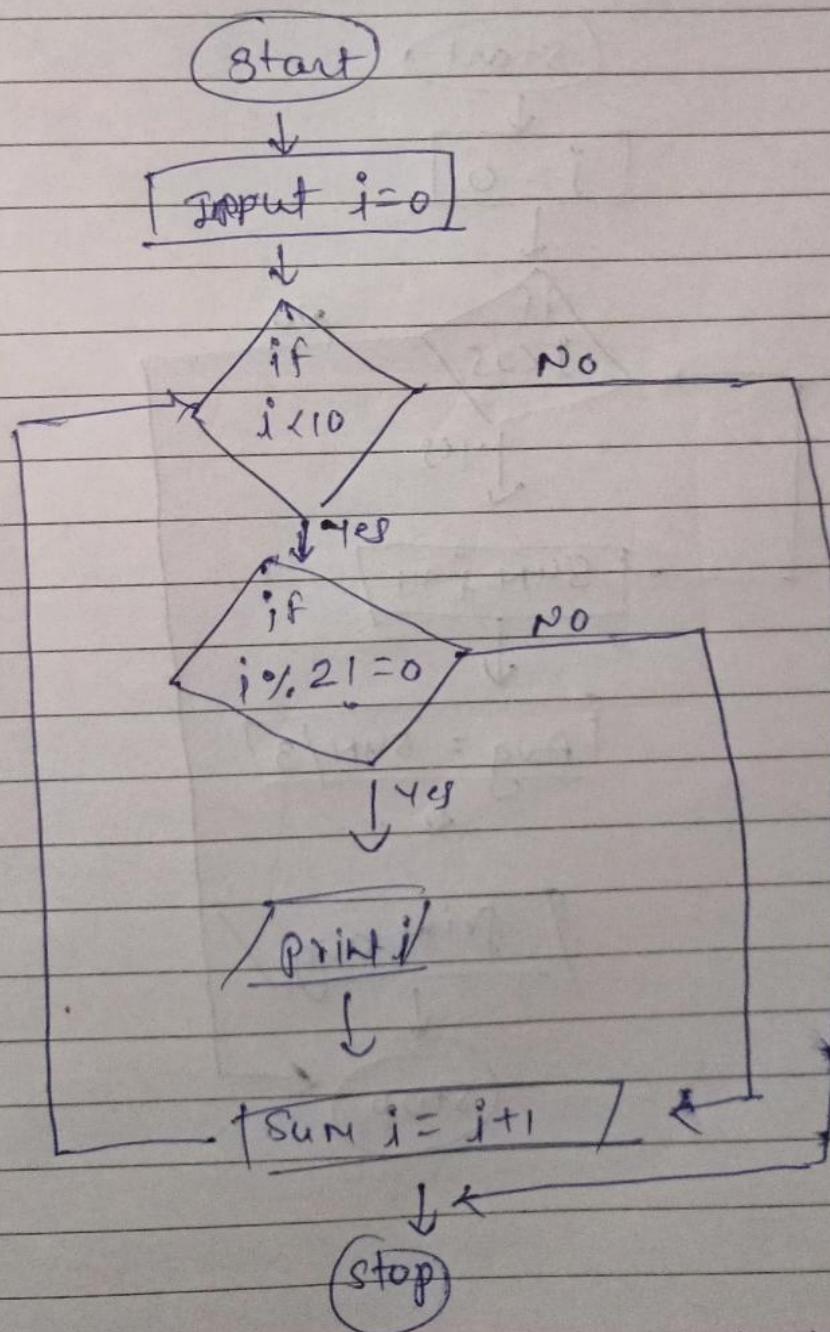 Start
Input i=0
if
i<10
No
Yes
if
i%2!=0
NO
Yes
print i
Sum i = i+1
Stop